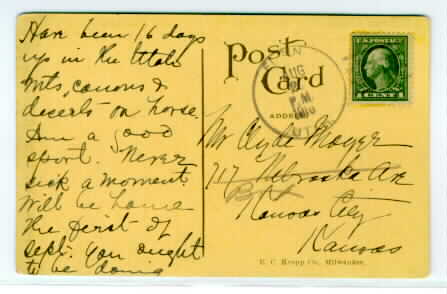 Have been 16 days
up in the Utah
Mts, canons &
deserts on horse.
Am a good
sport. Never
sick a moment
will be home
the first of
Sept. You ought
to be doing
Post Card
ADDRESS
AUG
P.M.
U.S. POSTAGE
1 CENT 1
Mr Clyde Moyer
717 Nebraska Av
Kansas City
Kansas
E. C. Kropp Co., Milwaukee.